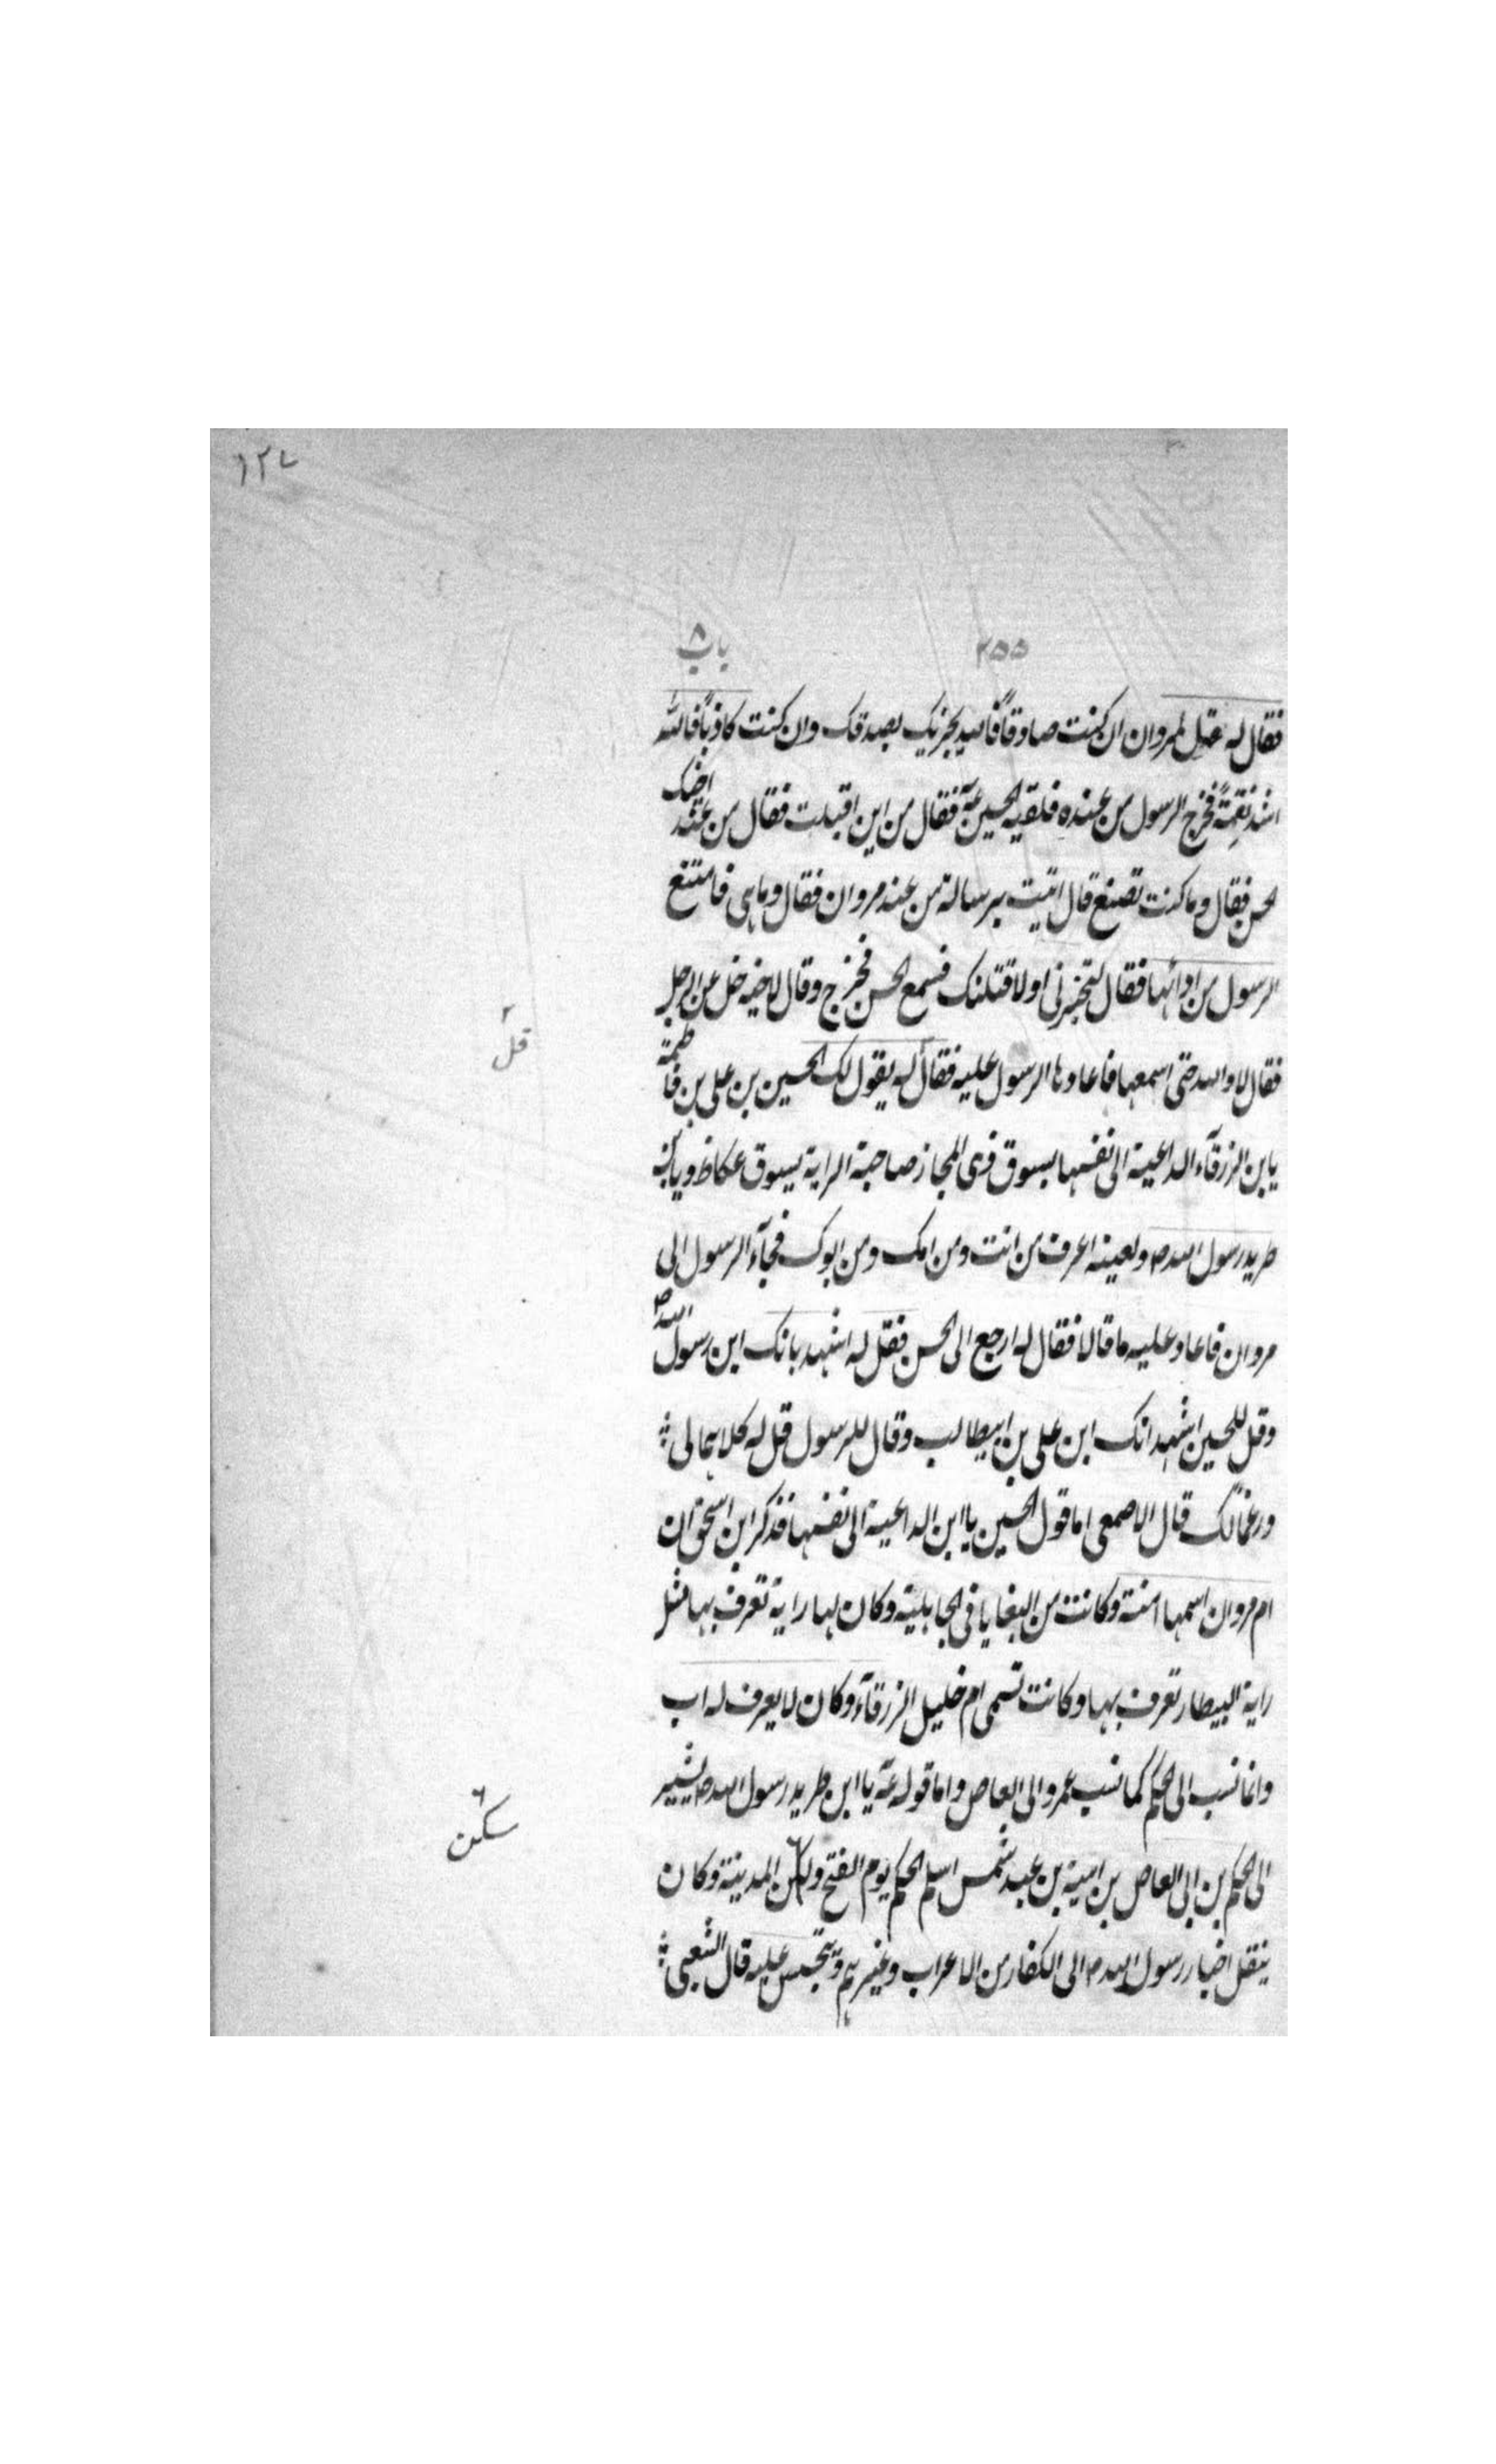 ١٢٧
٢٥٥ باب ٨
فقال له قل لمروان ان كنت صادقاً فالله يجزيك بصدقك وان كنت كاذباً فالله
اشد نقمةً فخرج الرسول من عنده فلقيه الحسين عه فقال من اين اقبلت فقال من عند اخيك
الحسن فقال وما كنت تصنع قال اتيت برسالة من عند مروان فقال وما هي فامتنع
الرسول من ادائها فقال لتخبرنى اولاقتلنك فسمع الحسن فخرج وقال لاخيه خل عن الرجل
فقال لا والله حتى اسمعها فاعادها الرسول عليه فقال له يقول لك الحسين بن على بن فاطمة
يابن الزرقآء الداعية الى نفسها بسوق ذى المجاز صاحبة الراية بسوق عكاظ ويابن
طريد رسول الله ص ولعينه اعرف من انت ومن امك ومن ابوك فجآء الرسول الى
مروان فاعاد عليه ما قالا فقال له ارجع الى الحسن فقل له اشهد بانك ابن رسول الله ص
وقل للحسين اشهد انك ابن على بن ابيطالب وقال للرسول قل له كلاهما لى
ورغماً لك قال الاصمعى اما قول الحسين يا ابن الداعية الى نفسها فذكر ابن اسحق ان
ام مروان اسمها امنة وكانت من البغايا فى الجاهلية وكان لها راية تعرف بها مثل
راية البيطار تعرف بها وكانت تسمى ام خليل الزرقآء وكان لا يعرف له اب
وانما نسب الى الحكم كما نسب عمرو الى العاص واما قوله عه يا ابن طريد رسول الله ص يشير
الى الحكم بن ابى العاص بن امية بن عبد شمس اسلم الحكم يوم الفتح و المدينة وكان
ينقل اخبار رسول الله ص الى الكفار من الاعراب وغيرهم ويتجسس عليه قال الشعبى
٢
قل
٦
سكن